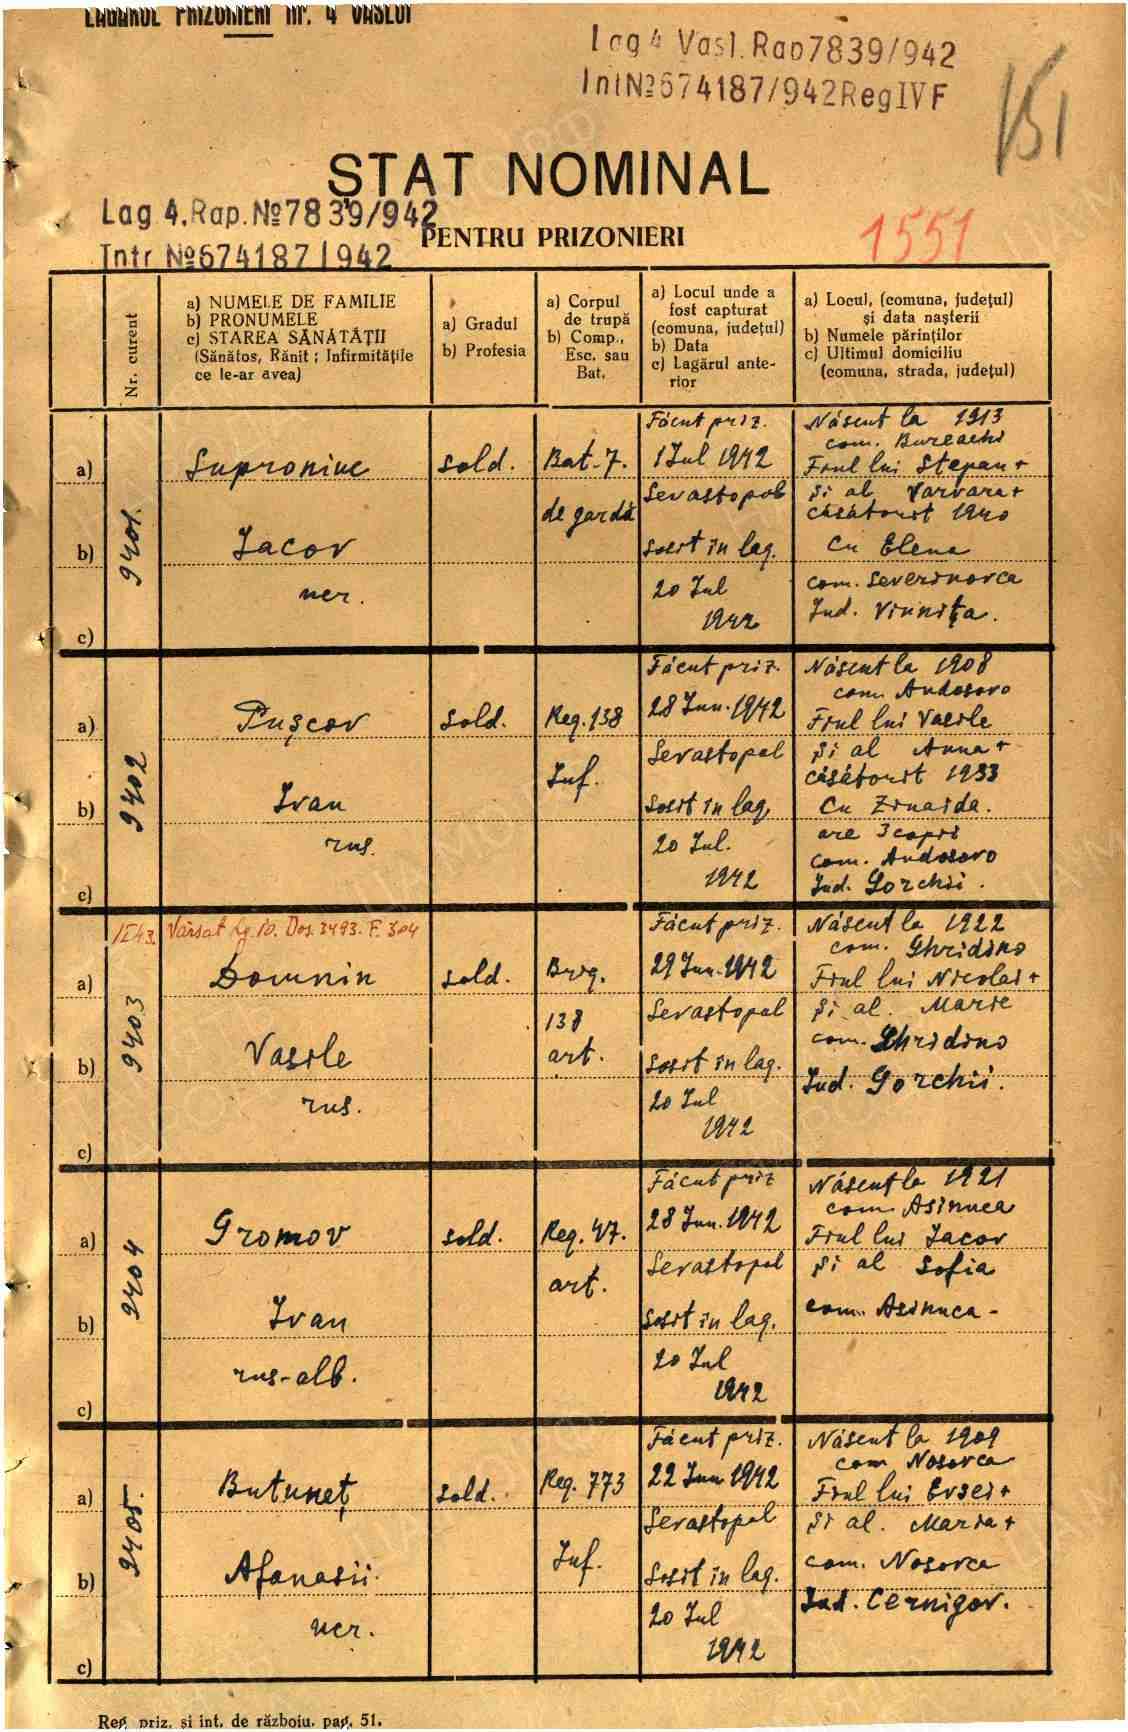 LAGĂRUL PRIZONIERI Nr. 4 VASLUI
Lag 4 Vasl. Rap 7839/942
Int № 674187/942 Reg IV F
151
STAT NOMINAL
Lag 4. Rap. № 7839/942
PENTRU PRIZONIERI
Intr № 674187/942
1551
Nr. curent
a) NUMELE DE FAMILIE
b) PRONUMELE
c) STAREA SĂNĂTĂȚII
(Sănătos, Rănit ; Infirmitățile
ce le-ar avea)
a) Gradul
b) Profesia
a) Corpul
de trupă
b) Comp.,
Esc. sau
Bat.
a) Locul unde a
fost capturat
(comuna, județul)
b) Data
c) Lagărul ante-
rior
a) Locul, (comuna, județul)
și data nașterii
b) Numele părinților
c) Ultimul domiciliu
(comuna, strada, județul)
a)
b)
c)
9401.
Suproniuc
Iacov
ucr.
sold.
Bat. 7.
de gardă
Făcut priz.
1 Iul 1942
Sevastopol
Sosit în lag.
20 Iul
1942
Născut la 1913
com. Bureachi
Fiul lui Stepan +
și al Varvara +
căsătorit 1940
cu Elena
com. Severinovca
Jud. Vinnița.
a)
b)
c)
9402
Pușcov
Ivan
rus.
sold.
Reg. 138
Inf.
Făcut priz.
28 Iun. 1942
Sevastopol
Sosit în lag.
20 Iul.
1942
Născut la 1908
com. Andosovo
Fiul lui Vasile
și al Anna +
căsătorit 1933
cu Zinaida.
are 3 copii
com. Andosovo
Jud. Gorchii.
a)
b)
c)
9403
Vărsat Lg. 10. Dos. 3493. F. 304
Domnin
Vasile
rus.
sold.
Brig.
138
art.
Făcut priz.
29 Iun. 1942
Sevastopol
Sosit în lag.
20 Iul
1942
Născut la 1922
com. Ghridino
Fiul lui Nicolai +
și al. Marie
com. Ghridino
Jud. Gorchii.
a)
b)
c)
9404
Gromov
Ivan
rus-alb.
sold.
Reg. 47.
art.
Făcut priz
28 Iun. 1942
Sevastopol
Sosit în lag.
20 Iul
1942
Născut la 1921
com. Asinuca
Fiul lui Iacov
și al Sofia
com. Asinuca -
a)
b)
c)
9405.
Butuneț
Afanasii.
ucr.
sold.
Reg. 773
Inf.
Făcut priz.
22 Iun 1942
Sevastopol
Sosit în lag.
20 Iul
1942
Născut la 1909
com Nosovca
Fiul lui Evsei +
și al. Maria +
com. Nosovca
Jud. Cernigov.
Reg. priz. și int. de războiu. pag. 51.